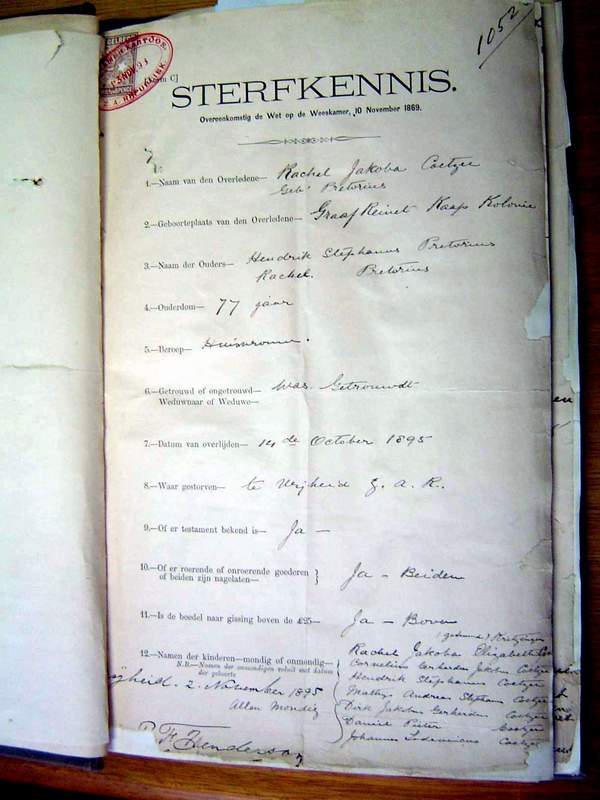 1052
STERFKENNIS.
Overeenkomstig de Wet op de Weeskamer, 10 November 1869.
1.—Naam van den Overledene— Rachel Jakoba Coetzee
Geb. Pretorius
2.—Geboorteplaats van den Overledene— Graaf Reinet Kaap Kolonie
3.—Naam der Ouders— Hendrik Stephanus Pretorius
Rachel. Pretorius
4.—Ouderdom— 77 jaar
5.—Beroep— Huisvrouw.
6.—Getrouwd of ongetrouwd— Was Getrouwdt
Weduwnaar of Weduwe—
7.—Datum van overlijden— 14de October 1895
8.—Waar gestorven— te Vrijheid Z. A. R.
9.—Of er testament bekend is— Ja —
10.—Of er roerende of onroerende goederen
of beiden zijn nagelaten— } Ja — Beiden
11.—Is de boedel naar gissing boven de £25— Ja — Boven
12.—Namen der kinderen—mondig of onmondig— Rachel Jakoba Elizabeth
N.B.—Namen der onmondigen voluit met datum Cornelius Gerhardus Jakobus Coetzee
der geboorte Hendrik Stephanus Coetzee
2 November 1895 Mathys Andreas Stephanus Coetzee
Allen Mondig Dirk Jakobus Gerhardus Coetzee
Daniel Pieter Coetzee
Johannes Lodewicus Coetzee
Henderson